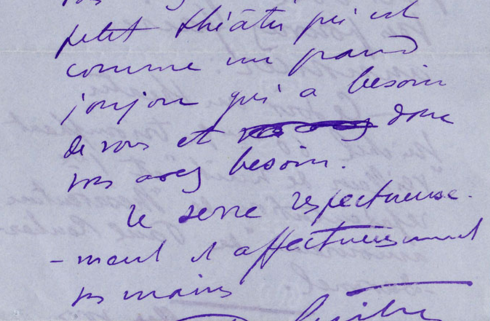 petit théâtre qui est
comme un grand
joujou qui a besoin
de vous et donc
vous avez besoin.
Je serre respectueuse-
-ment et affectueusement
vos mains